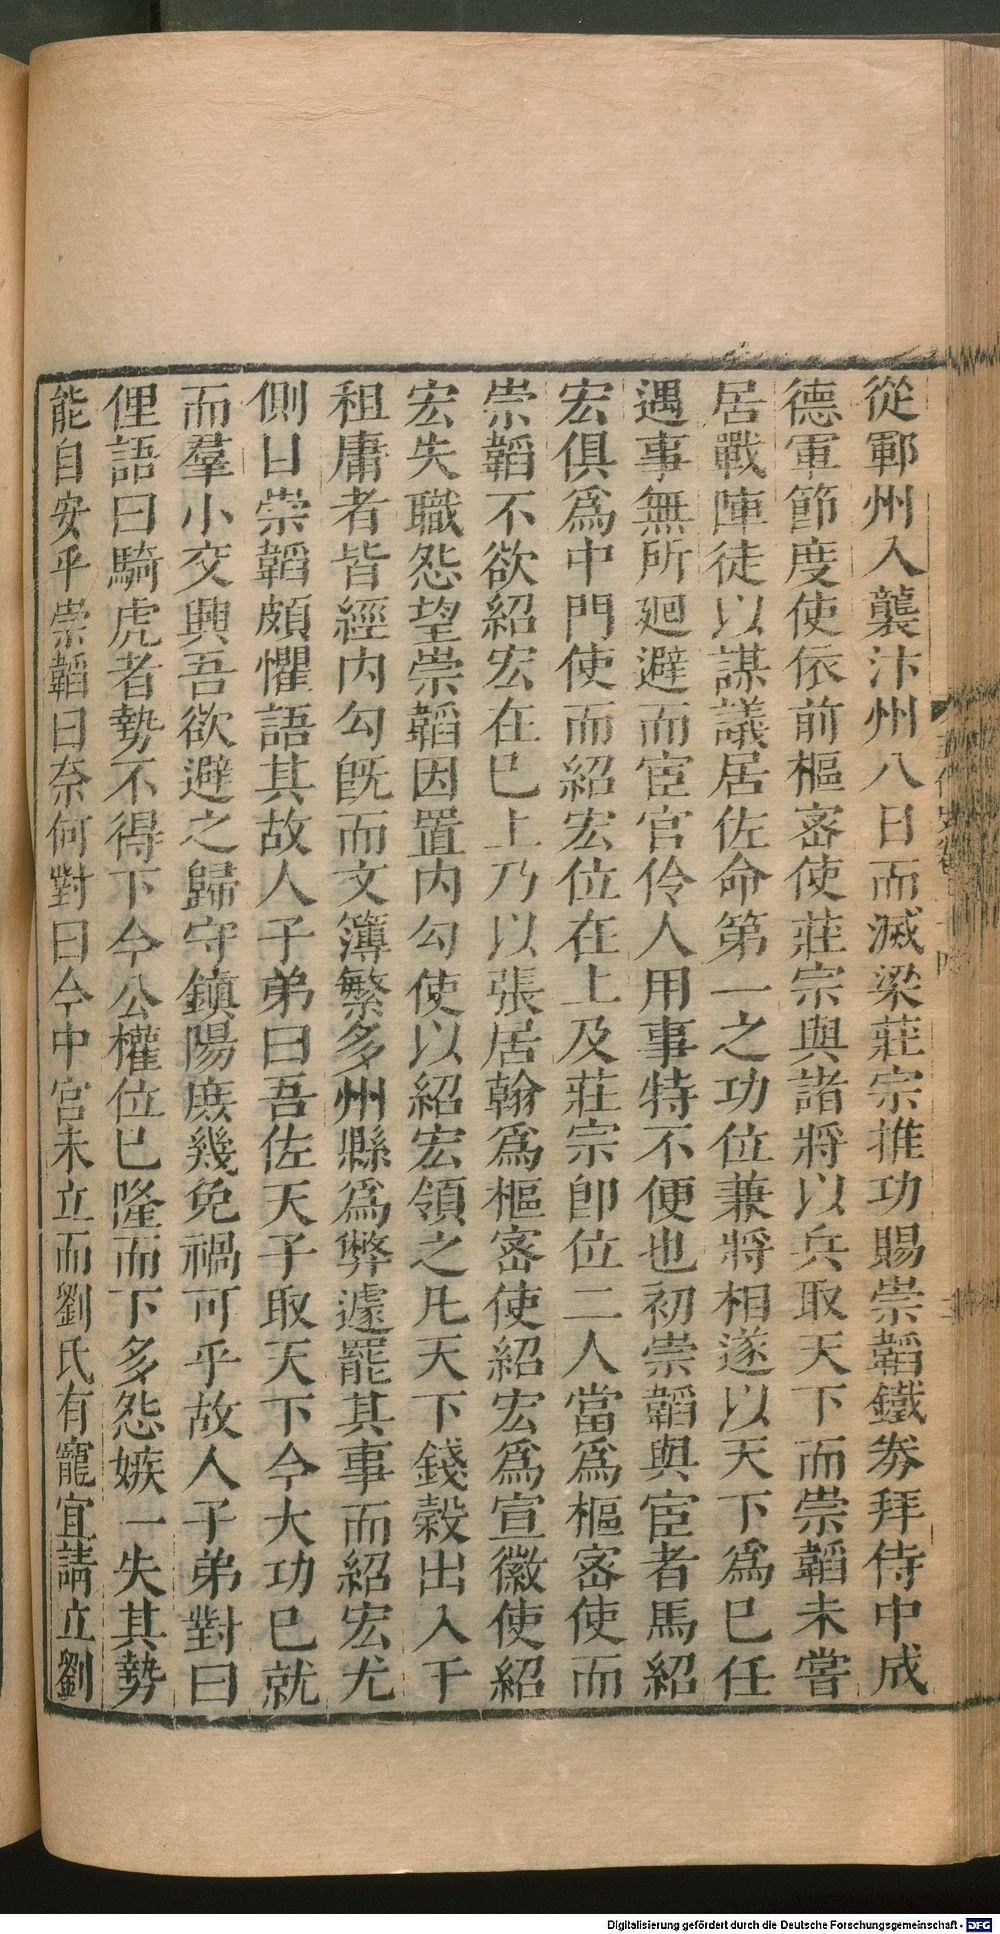 從鄆州入襲汴州八日而滅梁莊宗推功賜崇韜鐵券拜侍中成
德軍節度使依前樞密使莊宗與諸將以兵取天下而崇韜未嘗
居戰陣徒以謀議居佐命第一之功位兼將相遂以天下爲已任
遇事無所廻避而宦官伶人用事特不便也初崇韜與宦者馬紹
宏俱爲中門使而紹宏位在上及莊宗卽位二人當爲樞密使而
崇韜不欲紹宏在已上乃以張居翰爲樞密使紹宏爲宣徽使紹
宏失職怨望崇韜因置內勾使以紹宏領之凡天下錢穀出入于
租庸者皆經內勾旣而文簿繁多州縣爲弊遽罷其事而紹宏尤
側目崇韜頗懼語其故人子弟曰吾佐天子取天下今大功已就
而羣小交興吾欲避之歸守鎮陽庶幾免禍可乎故人子弟對曰
俚語曰騎虎者勢不得下今公權位已隆而下多怨嫉一失其勢
能自安乎崇韜曰奈何對曰今中宮未立而劉氏有寵宜請立劉
Digitalisierung gefördert durch die Deutsche Forschungsgemeinschaft - DFG